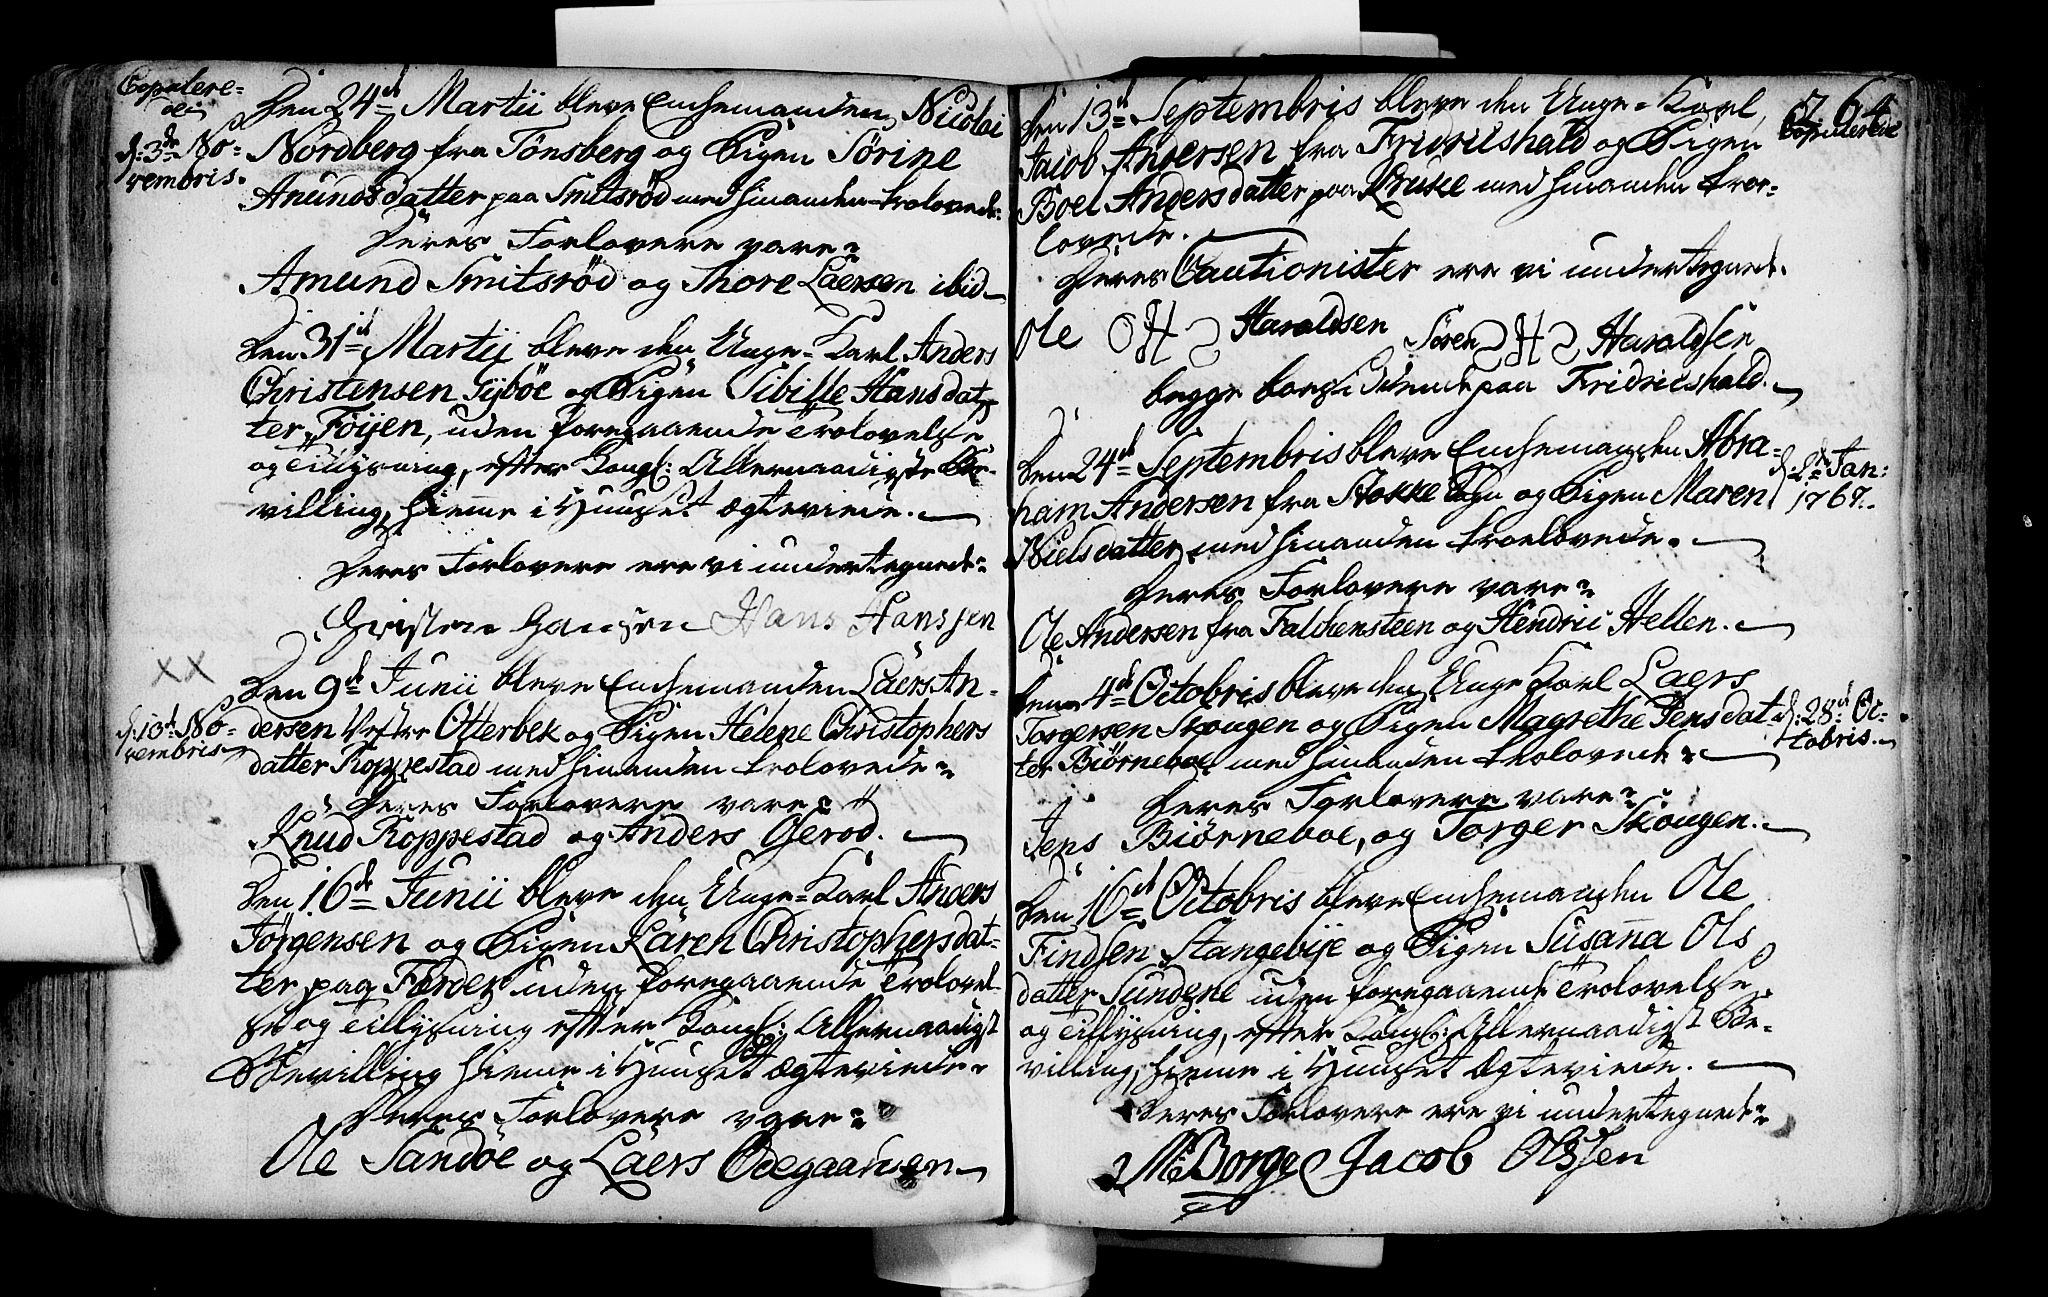 Copulere=
de
d: 3de No=
vembris.
Den 24de Martii bleve Enchemanden Nicolai
Nordberg fra Tönsberg og Pigen Sörine
Amunds datter paa Smitsröd med hinanden trolovede:
Deres Forlovere vare:
Amund Smitsröd og Thore Laersen ibid
Den 31te Martij bleve den Unge-Karl Anders
Christensen Tyböe og Pigen Sibille Hans dat-
ter Föyen, uden foregaaende Trolovelse
og Tillysning, efter Kongl: Allernaadigste Be-
villing, hiemme i Huuset ægteviede.
Deres Forlovere ere vi undertegnede:
Christen Hansen Hans Hanssen
XX
d: 10de No=
vembris
Den 9de Junii bleve Enchemanden Laers An-
dersen Vestre Otterbek og Pigen Helene Christophers
datter Roppestad med hinanden trolovede:
Deres Forlovere vare:
Knud Roppestad og Anders Gieröd.
Den 16de Junii bleve den Unge-Karl Anders
Jörgensen og Pigen Karen Christophers dat-
ter paa Færder uden foregaaende Trolovel-
se og Tillysning efter Kongl: Allernaadigst
Bevilling hiemme i Huuset ægteviede:
Deres Forlovere vare:
Ole Sandöe og Laers Ödegaarden
64
Copulerede
Den 13de Septembris bleve den Unge-Karl
Jacob Andersen fra Fridrichshald og Pigen
Boel Anders datter paa Kruke med hinanden troe-
lovede.
Deres Cautionister ere vi undertegnede.
Ole OHS Haroldsen Sören SHS Haroldsen
begge boesiddende paa Fridrichshald.
Den 24de Septembris bleve Enchemanden Abra-
ham Andersen fra Stokke Sogn og Pigen Maren
Niels datter med hinanden troelovede.
d: 2de Jan:
1767.
Deres Forlovere vare:
Ole Andersen fra Falchensteen og Hendric Hellen.
Den 4de Octobris bleve den Unge Karl Laers
Torgersen Skougen og Pigen Magrethe Jens dat-
ter Biörneboe med hinanden trolovede:
d: 28de Oc-
tobris.
Deres Forlovere vare:
Jens Biörneboe, og Torger Skougen.
Den 16de Octobris bleve Enchemanden Ole
Findsen Stangebije og Pigen Susana Ols
datter Sundene uden foregaaende Trolovelse
og Tillysning, efter Kongl: Allernaadigst Be-
villing, hiemme i Huuset ægteviede.
Deres Forlovere ere vi undertegnede:
M: Borge Jacob Olssen